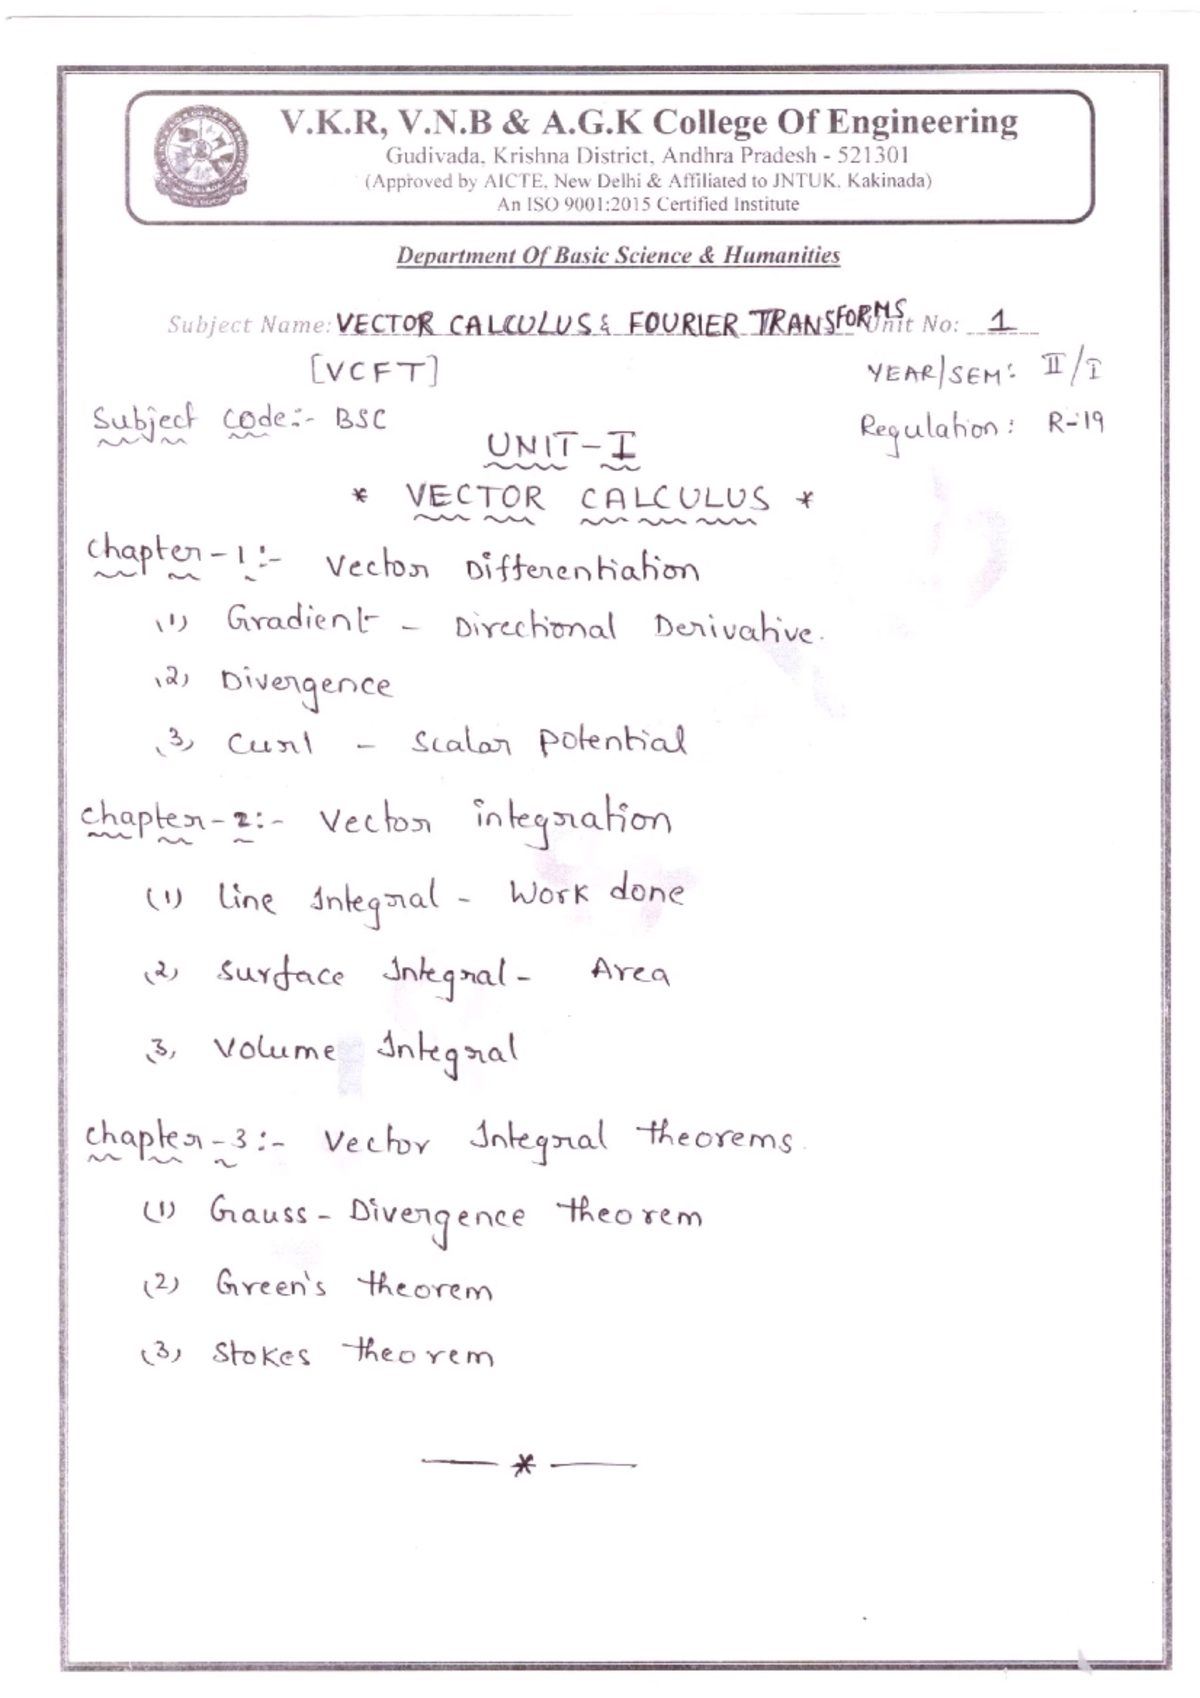 V.K.R, V.N.B & A.G.K College Of Engineering
Gudivada, Krishna District, Andhra Pradesh - 521301
(Approved by AICTE, New Delhi & Affiliated to JNTUK, Kakinada)
An ISO 9001:2015 Certified Institute
Department Of Basic Science & Humanities
Subject Name: VECTOR CALCULUS & FOURIER TRANSFORMS Unit No: 1
[VCFT] YEAR/SEM: II/I
Subject code:- BSC Regulation: R-19
UNIT-I
* VECTOR CALCULUS *
chapter-1:- Vector Differentiation
(1) Gradient - Directional Derivative.
(2) Divergence
(3) Curl - Scalar Potential
chapter-2:- Vector integration
(1) Line Integral - Work done
(2) Surface Integral - Area
(3) Volume Integral
chapter-3:- Vector Integral theorems.
(1) Gauss - Divergence theorem
(2) Green's theorem
(3) Stokes theorem
— * —